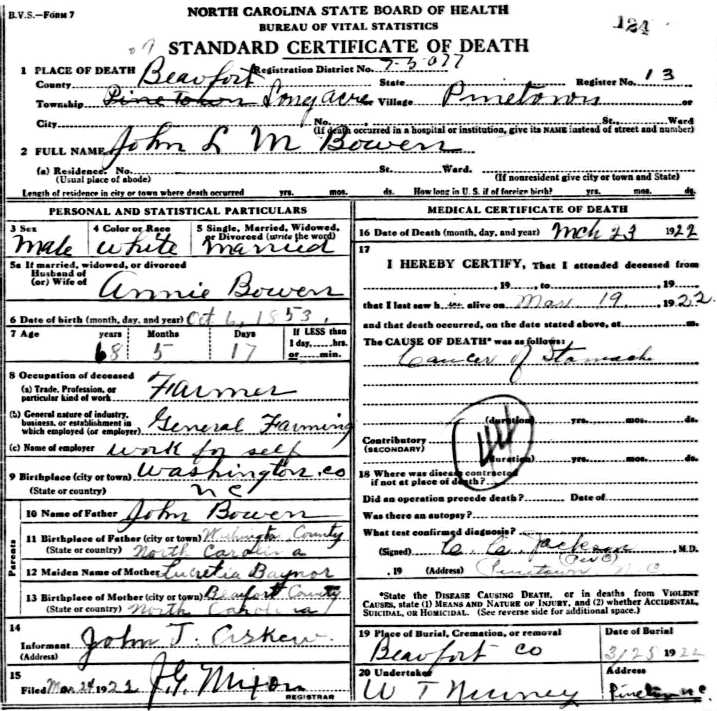 B.V.S.—Form 7
NORTH CAROLINA STATE BOARD OF HEALTH
BUREAU OF VITAL STATISTICS
124
STANDARD CERTIFICATE OF DEATH
1 PLACE OF DEATH Registration District No. 7-5-077
County Beaufort State Register No. 13
Township Pinetown Long acre Village Pinetown or
City No. St., Ward
(If death occurred in a hospital or institution, give its NAME instead of street and number)
2 FULL NAME John L M Bowen
(a) Residence. No. St. Ward.
(Usual place of abode) (If nonresident give city or town and State)
Length of residence in city or town where death occurred yrs. mos. ds. How long in U. S. if of foreign birth? yrs. mos. ds.
PERSONAL AND STATISTICAL PARTICULARS
3 Sex 4 Color or Race 5 Single, Married, Widowed, or Divorced (write the word)
Male white Married
5a If married, widowed, or divorced
Husband of
(or) Wife of Annie Bowen
6 Date of birth (month, day, and year) Oct 6, 1853,
7 Age years Months Days If LESS than
1 day, hrs.
68 5 17 or min.
8 Occupation of deceased
(a) Trade, Profession, or
particular kind of work Farmer
(b) General nature of industry,
business, or establishment in
which employed (or employer) General Farming
(c) Name of employer work for self
9 Birthplace (city or town) Washington co
(State or country) NC
Parents
10 Name of Father John Bowen
11 Birthplace of Father (city or town) Washington County
(State or country) North Carolina
12 Maiden Name of Mother Lucretia Baynor
13 Birthplace of Mother (city or town) Beaufort County
(State or country) North Carolina
14
Informant John T. Askew
(Address)
15
Filed Mar 24 1922 J.G. Mixon
REGISTRAR
MEDICAL CERTIFICATE OF DEATH
16 Date of Death (month, day, and year) Mch 23 1922
17
I HEREBY CERTIFY, That I attended deceased from
, 19 , to , 19
that I last saw h alive on Mar 19, 1922
and that death occurred, on the date stated above, at m.
The CAUSE OF DEATH* was as follows:
Cancer of Stomach
44
(duration) yrs. mos. ds.
Contributory
(SECONDARY)
(duration) yrs. mos. ds.
18 Where was disease contracted
if not at place of death?
Did an operation precede death? Date of
Was there an autopsy?
What test confirmed diagnosis?
(Signed) C. C. Jackson, M.D.
, 19 (Address) Pinetown N C
*State the DISEASE CAUSING DEATH, or in deaths from VIOLENT
CAUSES, state (1) MEANS AND NATURE OF INJURY, and (2) whether ACCIDENTAL,
SUICIDAL, OR HOMICIDAL. (See reverse side for additional space.)
19 Place of Burial, Cremation, or removal Date of Burial
Beaufort Co 3/25 1922
20 Undertaker Address
W T Pinetown N.C.